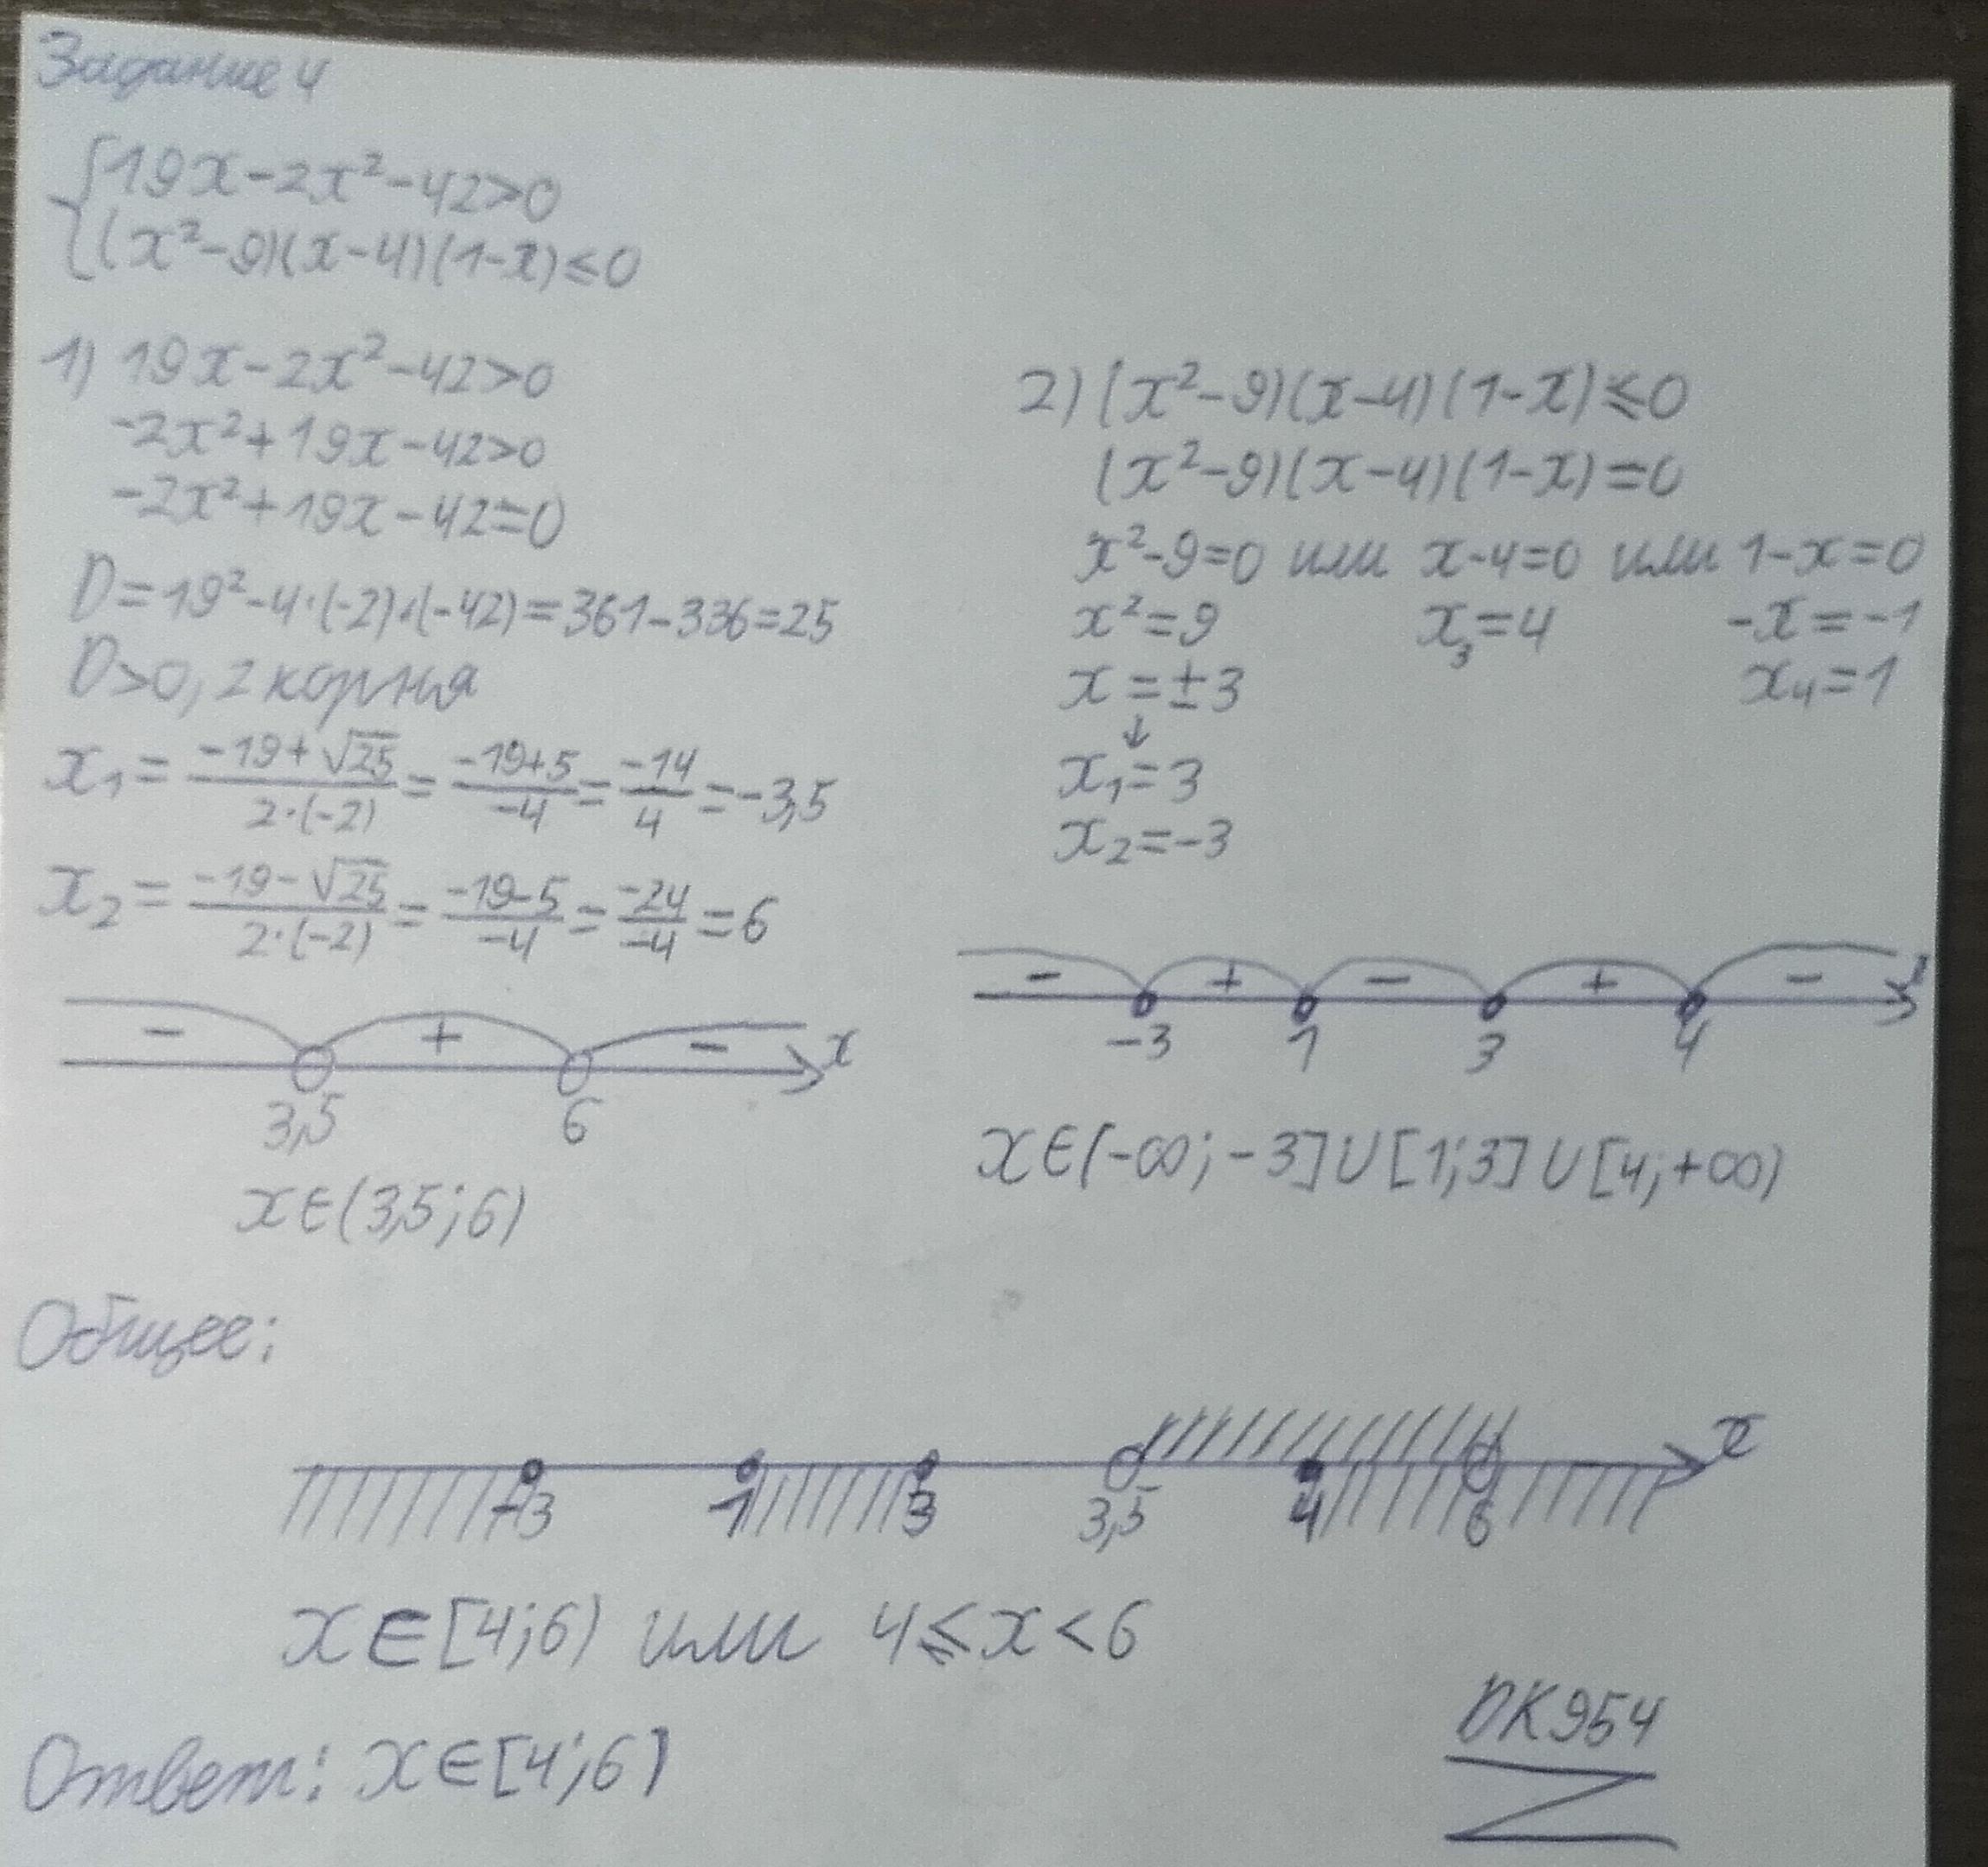 Задание 4
{19x-2x²-42>0
{(x²-9)(x-4)(1-x)≤0
1) 19x-2x²-42>0
-2x²+19x-42>0
-2x²+19x-42=0
D=19²-4·(-2)·(-42)=361-336=25
D>0, 2 корня
x₁=(-19+√25)/(2·(-2))=(-19+5)/(-4)=(-14)/4=-3,5
x₂=(-19-√25)/(2·(-2))=(-19-5)/(-4)=(-24)/(-4)=6
- + - x
3,5 6
x∈(3,5;6)
2) (x²-9)(x-4)(1-x)≤0
(x²-9)(x-4)(1-x)=0
x²-9=0 или x-4=0 или 1-x=0
x²=9 x₃=4 -x=-1
x=±3 x₄=1
↓
x₁=3
x₂=-3
- + - + -
-3 1 3 4
x∈(-∞;-3]∪[1;3]∪[4;+∞)
Общее:
x
-3 1 3 3,5 4 6
x∈[4;6) или 4≤x<6
Ответ: x∈[4;6)
DK954